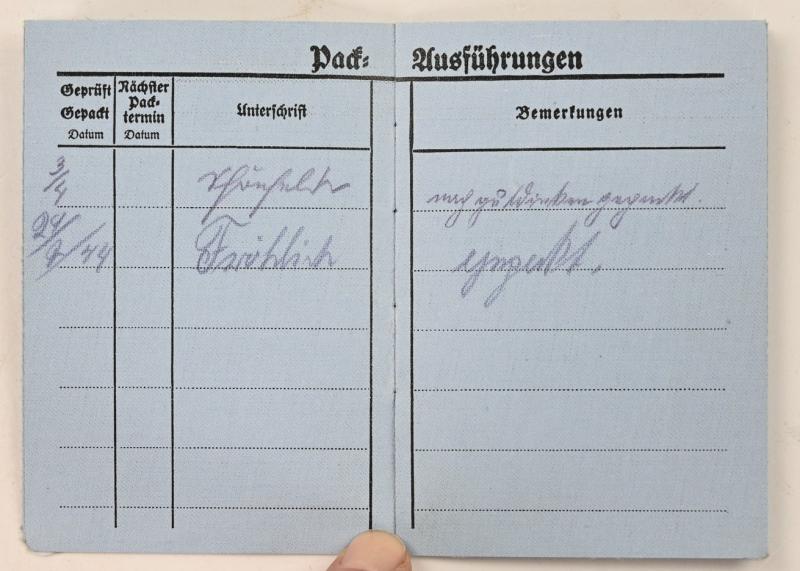 Pack-Ausführungen
Geprüft
Gepackt
Datum
Nächster
Pack-
termin
Datum
Unterschrift
Bemerkungen
3/4
nach gepackt.
29/7/44 Fröhlich gepackt.